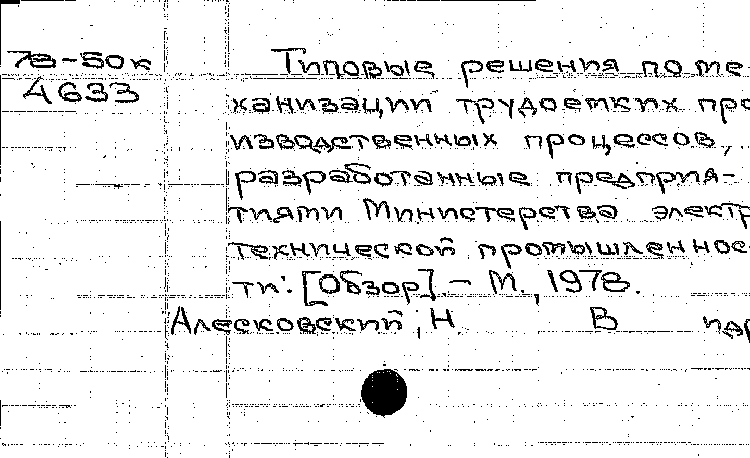 78-50к Типовые решения по ме-
4633 ханизации трудоемких про
изводственных процессов,
разработанные предприя-
тиями Министерства электр
технической промышленнос
ти: [Обзор]. - М., 1978.
Алесковский, Н. В